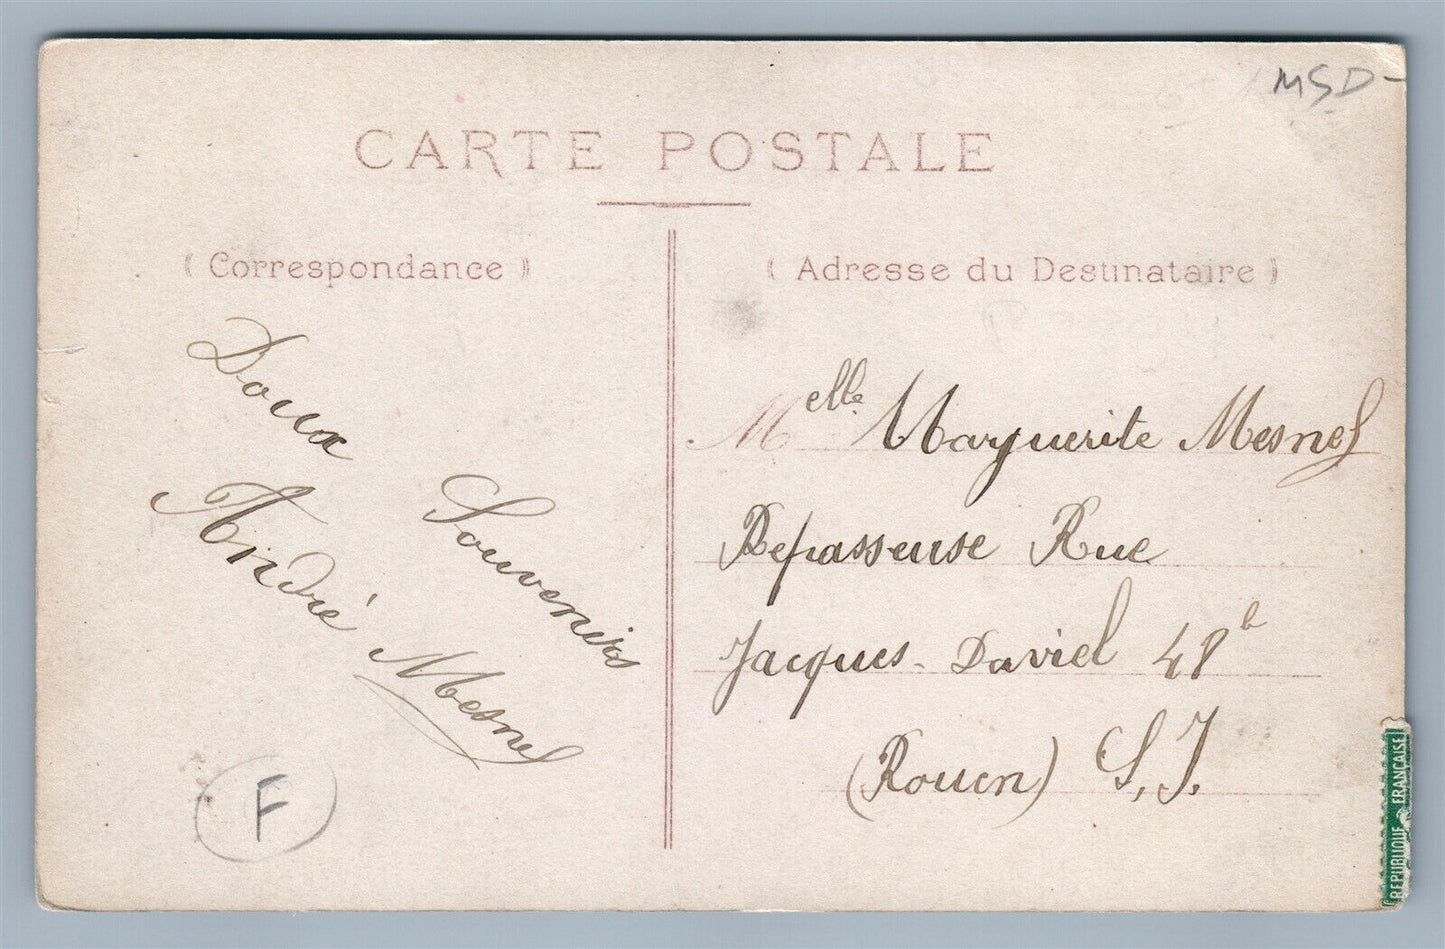 MSD-
CARTE POSTALE
( Correspondance )
( Adresse du Destinataire )
Doux
Souvenirs
André Mesnel
F
Melle Marguerite Mesnel
Repasseuse Rue
Jacques-Daviel 48b
(Rouen) S. I.
REPUBLIQUE FRANÇAISE